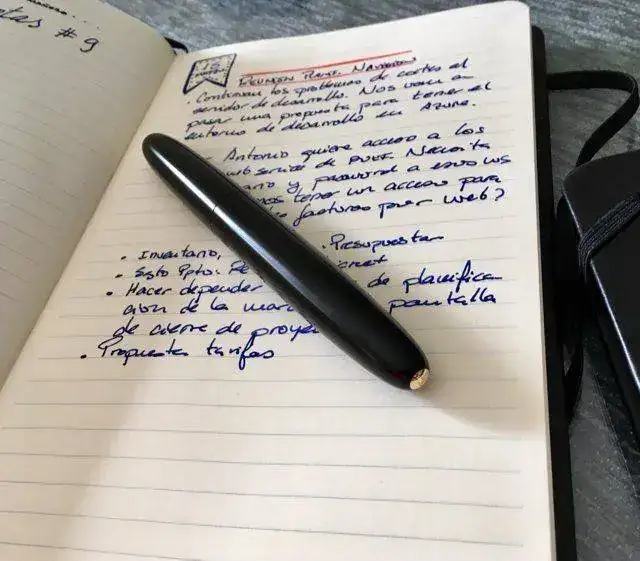 tas # 9
15
REUNIÓN
· Continúan los problemas de cortes el
servidor de desarrollo. Nos van a
pasar una propuesta para tener el
entorno de desarrollo en Azure.
Antonio quiere acceso a los
web service de Necesita
ario y password a esos ws
mos tener un acceso para
facturas por web?
· Inventario, · Presupuestar
· Ppto.
· Hacer depender de planifica
ción de la mar pantalla
de cierre de proye
· Propuestas tarifas